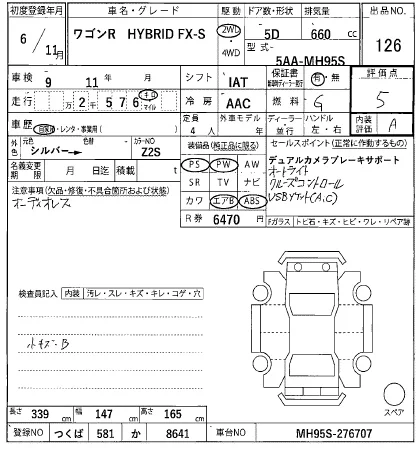 初度登録年月 車名・グレード 駆動 ドア数・形状 排気量 出品NO
6/11月 ワゴンR HYBRID FX-S 2WD ・4WD 5D 660 cc 126
型式 5AA-MH95S
車検 9年 11月 シフト IAT 保証書 有・無 評価点
走行 万2千576 キロ マイル 冷房 AAC 燃料 G 5
車歴 自家用・レンタ・事業用( ) 定員 4人 外車モデル 年 ディーラー・並行 ハンドル 左・右 内装評価 A
外色 元色 シルバー→ 色替 カラーNO Z2S 装備品(純正品に限る) セールスポイント(正常に作動するもの)
名義変更期限 月 日迄 積載 t PS PW AW デュアルカメラブレーキサポート
注意事項(欠品・修復・不具合箇所および状態) SR TV ナビ オートライト
オーディオレス カワ エアB ABS クルーズコントロール
USBソケット(A,C)
R券 6470 円 Fガラス トビ石・キズ・ヒビ・ワレ・リペア跡
検査員記入 内装 汚レ・スレ・キズ・キレ・コゲ・穴
小キズ-B
スペア
長さ 339 cm 幅 147 cm 高さ 165 cm
登録NO つくば 581 か 8641 車台NO MH95S-276707